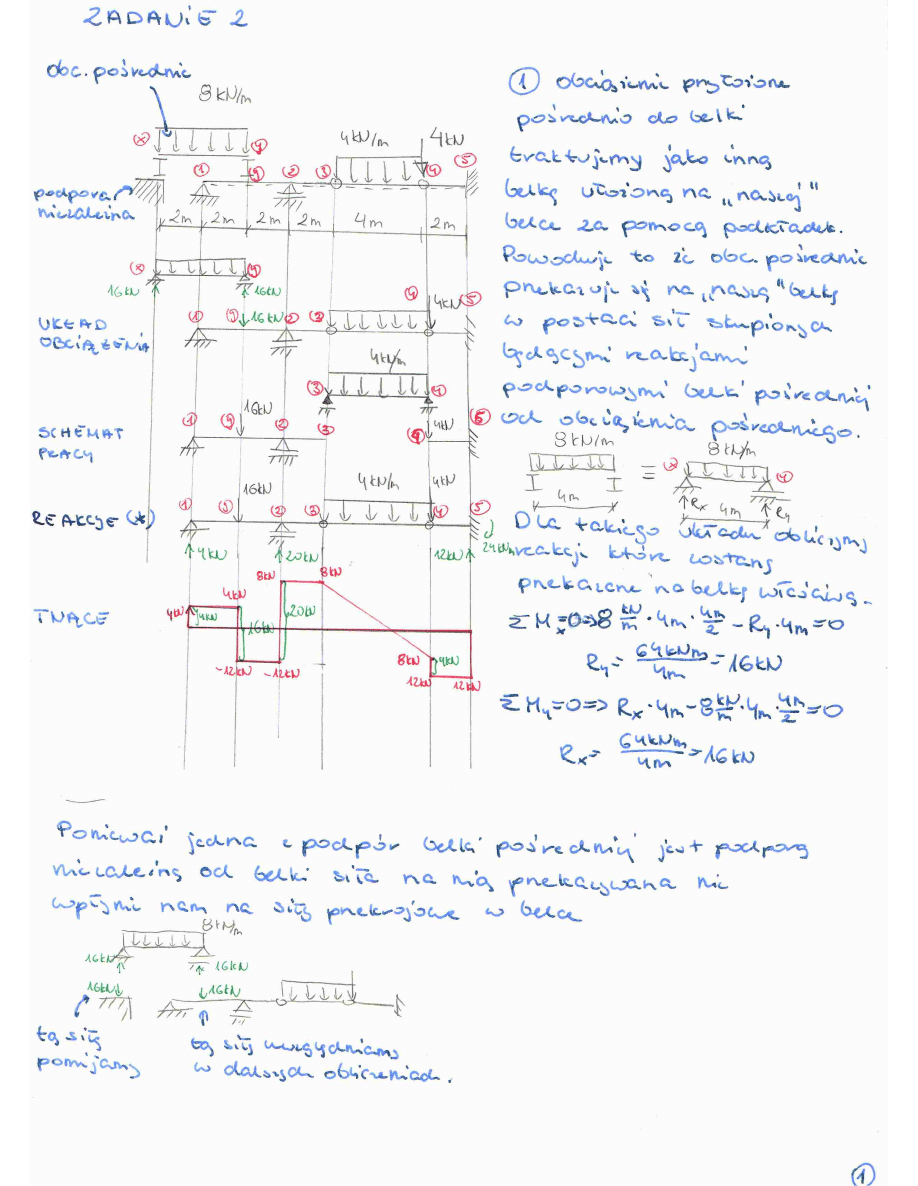 ZADANIE 2
obc. pośrednie
8 kN/m
x y
4kN/m 4kN
1 y 2 3 4 5
podpora
niezależna
2m 2m 2m 2m 4m 2m
x y
16kN 16kN
UKŁAD
OBCIĄŻENIA
1 y 16kN 2 3 4 4kN 5
4kN/m
3 4
SCHEMAT
PRACY
1 y 16kN 2 3 4 4kN 5
REAKCJE (*)
1 y 16kN 2 3 4kN/m 4 4kN 5
4kN 20kN 12kN 24kNm
TNĄCE
4kN 4kN 4kN 16kN -12kN -12kN 8kN 20kN 8kN 8kN 4kN 12kN 12kN
1 obciążenie przyłożone
pośrednio do belki
traktujemy jako inną
belkę ułożoną na „naszej"
belce za pomocą podkładek.
Powoduje to że obc. pośrednie
przekazuje się na „naszą" belkę
w postaci sił skupionych
będącymi reakcjami
podporowymi belki pośredniej
od obciążenia pośredniego.
8kN/m ≡ x 8kN/m y
4m Rx 4m Ry
Dla takiego układu obliczymy
reakcje które zostaną
przekazane na belkę właściwą.
ΣMx=0=>8 kN/m · 4m · 4m/2 - Ry·4m=0
Ry= 64kNm/4m =16kN
ΣMy=0=> Rx·4m-8 kN/m · 4m · 4m/2 =0
Rx= 64kNm/4m =16kN
Ponieważ jedna z podpór belki pośredniej jest podporą
niezależną od belki siła na nią przekazywana nie
wpłynie nam na siły przekrojowe w belce
8kN/m
16kN 16kN
16kN 16kN
tą siłę
pomijamy
tą siłę uwzględniamy
w dalszych obliczeniach.
1